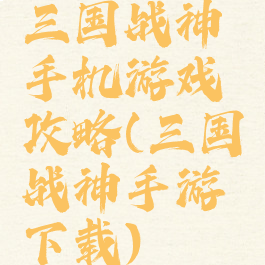 三国战神
手机游戏
攻略(三国
战神手游
下载)